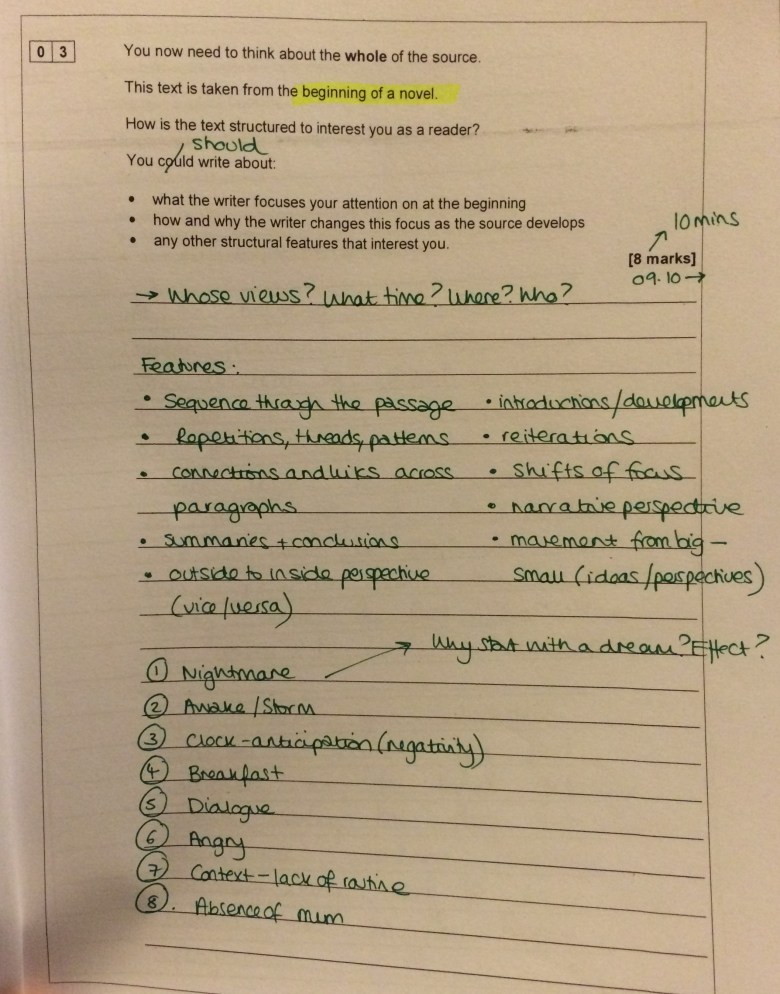 0 3 You now need to think about the whole of the source.
This text is taken from the beginning of a novel.
How is the text structured to interest you as a reader?
should
You could write about:
• what the writer focuses your attention on at the beginning
• how and why the writer changes this focus as the source develops
• any other structural features that interest you.
10 mins
[8 marks]
09.10 →
→ Whose views? What time? Where? Who?
Features:
• Sequence through the passage • introductions/developments
• Repetitions, threads, patterns • reiterations
• connections and links across • shifts of focus
paragraphs • narrative perspective
• summaries + conclusions • movement from big –
• outside to inside perspective small (ideas/perspectives)
(vice/versa)
→ Why start with a dream? Effect?
① Nightmare
② Awake/Storm
③ Clock – anticipation (negativity)
④ Breakfast
⑤ Dialogue
⑥ Angry
⑦ Context – lack of routine
⑧. Absence of mum